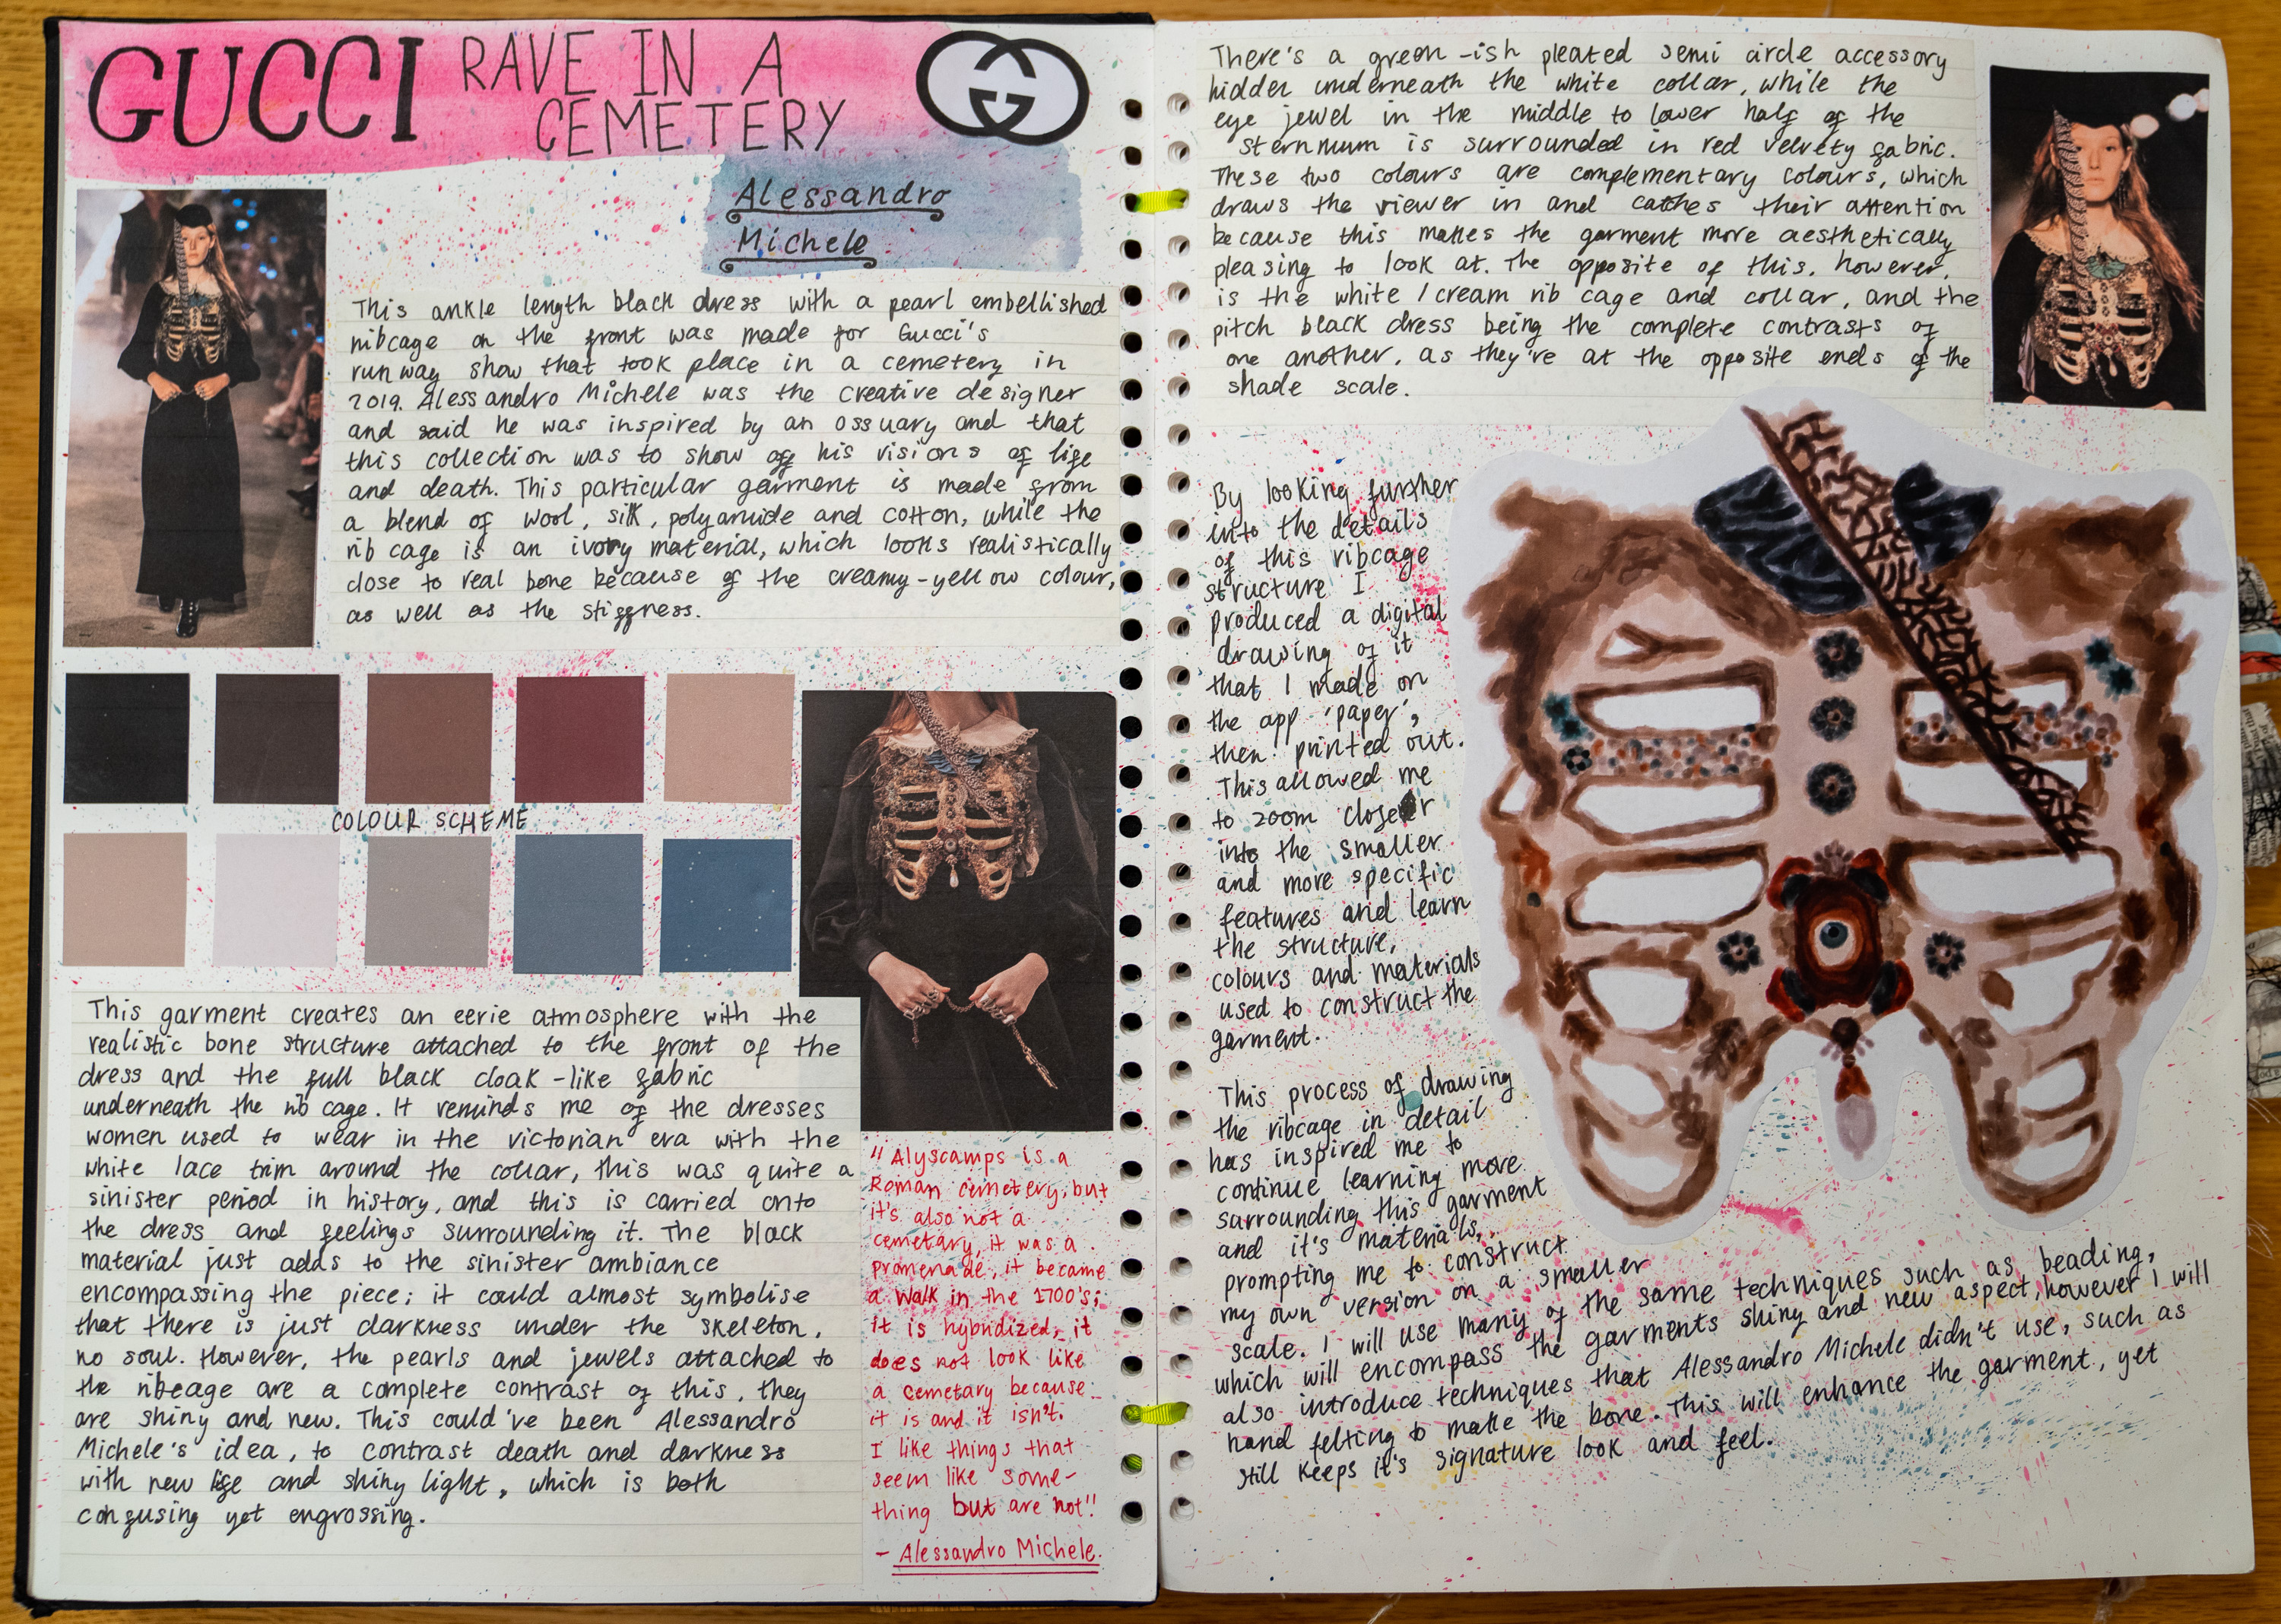 GUCCI RAVE IN A
CEMETERY
Alessandro
Michele
This ankle length black dress with a pearl embellished
ribcage on the front was made for Gucci's
runway show that took place in a cemetery in
2019. Alessandro Michele was the creative designer
and said he was inspired by an ossuary and that
this collection was to show off his visions of life
and death. This particular garment is made from
a blend of wool, silk, polyamide and cotton, while the
rib cage is an ivory material, which looks realistically
close to real bone because of the creamy-yellow colour,
as well as the stiffness.
COLOUR SCHEME
This garment creates an eerie atmosphere with the
realistic bone structure attached to the front of the
dress and the full black cloak-like fabric
underneath the rib cage. It reminds me of the dresses
women used to wear in the victorian era with the
white lace trim around the collar, this was quite a
sinister period in history, and this is carried onto
the dress and feelings surrounding it. The black
material just adds to the sinister ambiance
encompassing the piece; it could almost symbolise
that there is just darkness under the skeleton,
no soul. However, the pearls and jewels attached to
the ribcage are a complete contrast of this, they
are shiny and new. This could've been Alessandro
Michele's idea, to contrast death and darkness
with new life and shiny light, which is both
confusing yet engrossing.
"Alyscamps is a
Roman cemetery, but
it's also not a
cemetary, it was a
promenade, it became
a walk in the 1700's;
it is hybridized, it
does not look like
a cemetary because
it is and it isn't.
I like things that
seem like some-
thing but are not!"
- Alessandro Michele.
There's a green-ish pleated semi circle accessory
hidden underneath the white collar, while the
eye jewel in the middle to lower half of the
sternmum is surrounded in red velvety fabric.
These two colours are complementary colours, which
draws the viewer in and catches their attention
because this makes the garment more aesthetically
pleasing to look at. The opposite of this, however,
is the white/cream rib cage and collar, and the
pitch black dress being the complete contrasts of
one another, as they're at the opposite ends of the
shade scale.
By looking further
into the details
of this ribcage
structure I
produced a digital
drawing of it
that I made on
the app 'paper',
then printed out.
This allowed me
to zoom closer
into the smaller
and more specific
features and learn
the structure,
colours and materials
used to construct the
garment.
This process of drawing
the ribcage in detail
has inspired me to
continue learning more
surrounding this garment
and it's materials,
prompting me to construct
my own version on a smaller
scale. I will use many of the same techniques such as beading,
which will encompass the garments shiny and new aspect, however I will
also introduce techniques that Alessandro Michele didn't use, such as
hand felting to make the bone. This will enhance the garment, yet
still keeps it's signature look and feel.